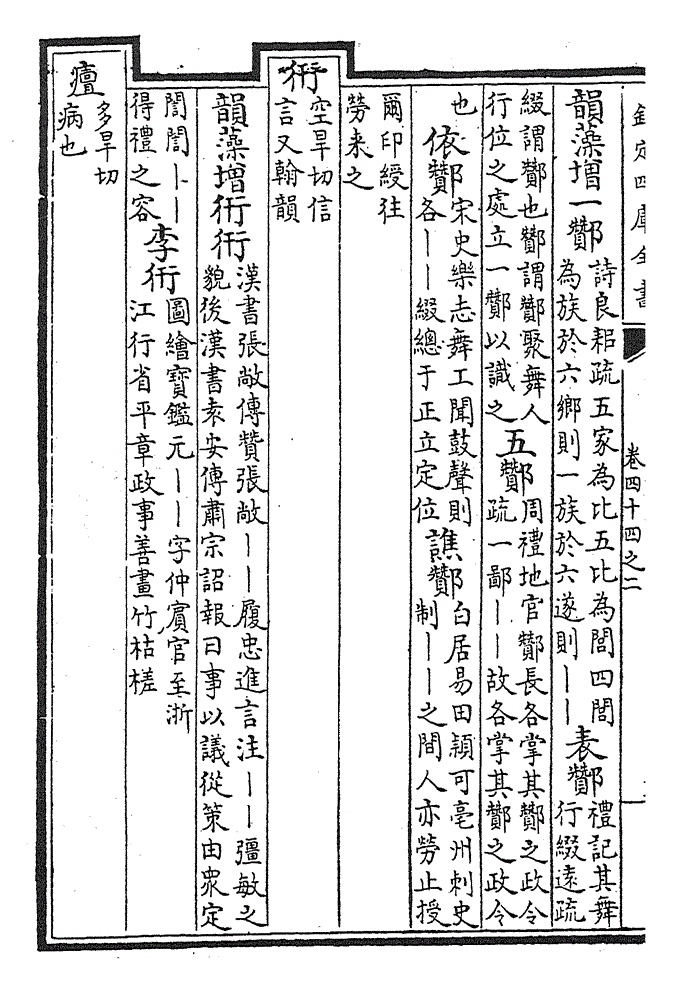 欽定四庫全書 卷四十四之二 一
韻藻增一酇
詩良耜疏五家為比五比為閭四閭
為族於六鄉則一族於六遂則丨丨
表酇
禮記其舞
行綴遠疏
綴謂酇也酇謂酇聚舞人
行位之處立一酇以識之
五酇
周禮地官酇長各掌其酇之政令
疏一鄙丨丨故各掌其酇之政令
也
依酇
宋史樂志舞工聞鼓聲則
各丨丨綴總于正立定位
譙酇
白居易田穎可亳州刺史
制丨丨之間人亦勞止授
爾印綬往
勞来之
衎
空旱切信
言又翰韻
韻藻增衎衎
漢書張敞傳贊張敞丨丨履忠進言注丨丨彊敏之
貌後漢書袁安傳肅宗詔報曰事以議從策由衆定
誾誾丨丨
得禮之容
李衎
圖繪寶鑑元丨丨字仲賓官至浙
江行省平章政事善畫竹枯槎
𤺺
多旱切
病也